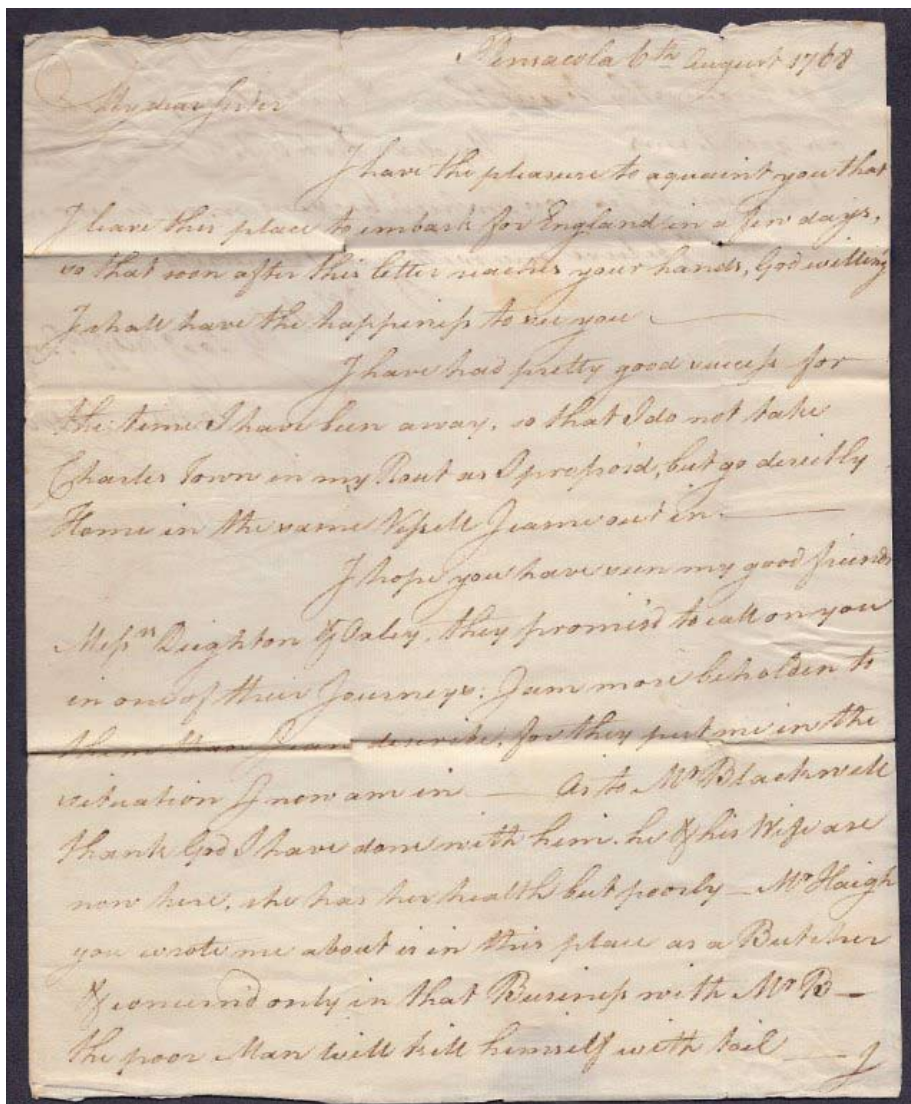 Pensacola 6th August 1768
My dear Sister
I have the pleasure to aquaint you that
I leave this place to embark for England in a few days,
so that soon after this letter reaches your hands, God willing
I shall have the happiness to see you
I have had pretty good success for
the time I have been away, so that I do not take
Charles Town in my Rout as I propos'd, but go directly
Home in the same Vessell I came out in.
I hope you have seen my good friends
Messrs Deighton & Oxley, they promis'd to call on you
in one of their Journeys; I am more beholden to
them than I can describe, for they put me in the
situation I now am in — As to Mr Blackwell
thank God I have done with him, he & his Wife are
now here, she has her health but poorly — Mr Haigh
you wrote me about is in this place as a Butcher
& concern'd only in that Business with Mr B—
the poor Man will kill himself with toil — I